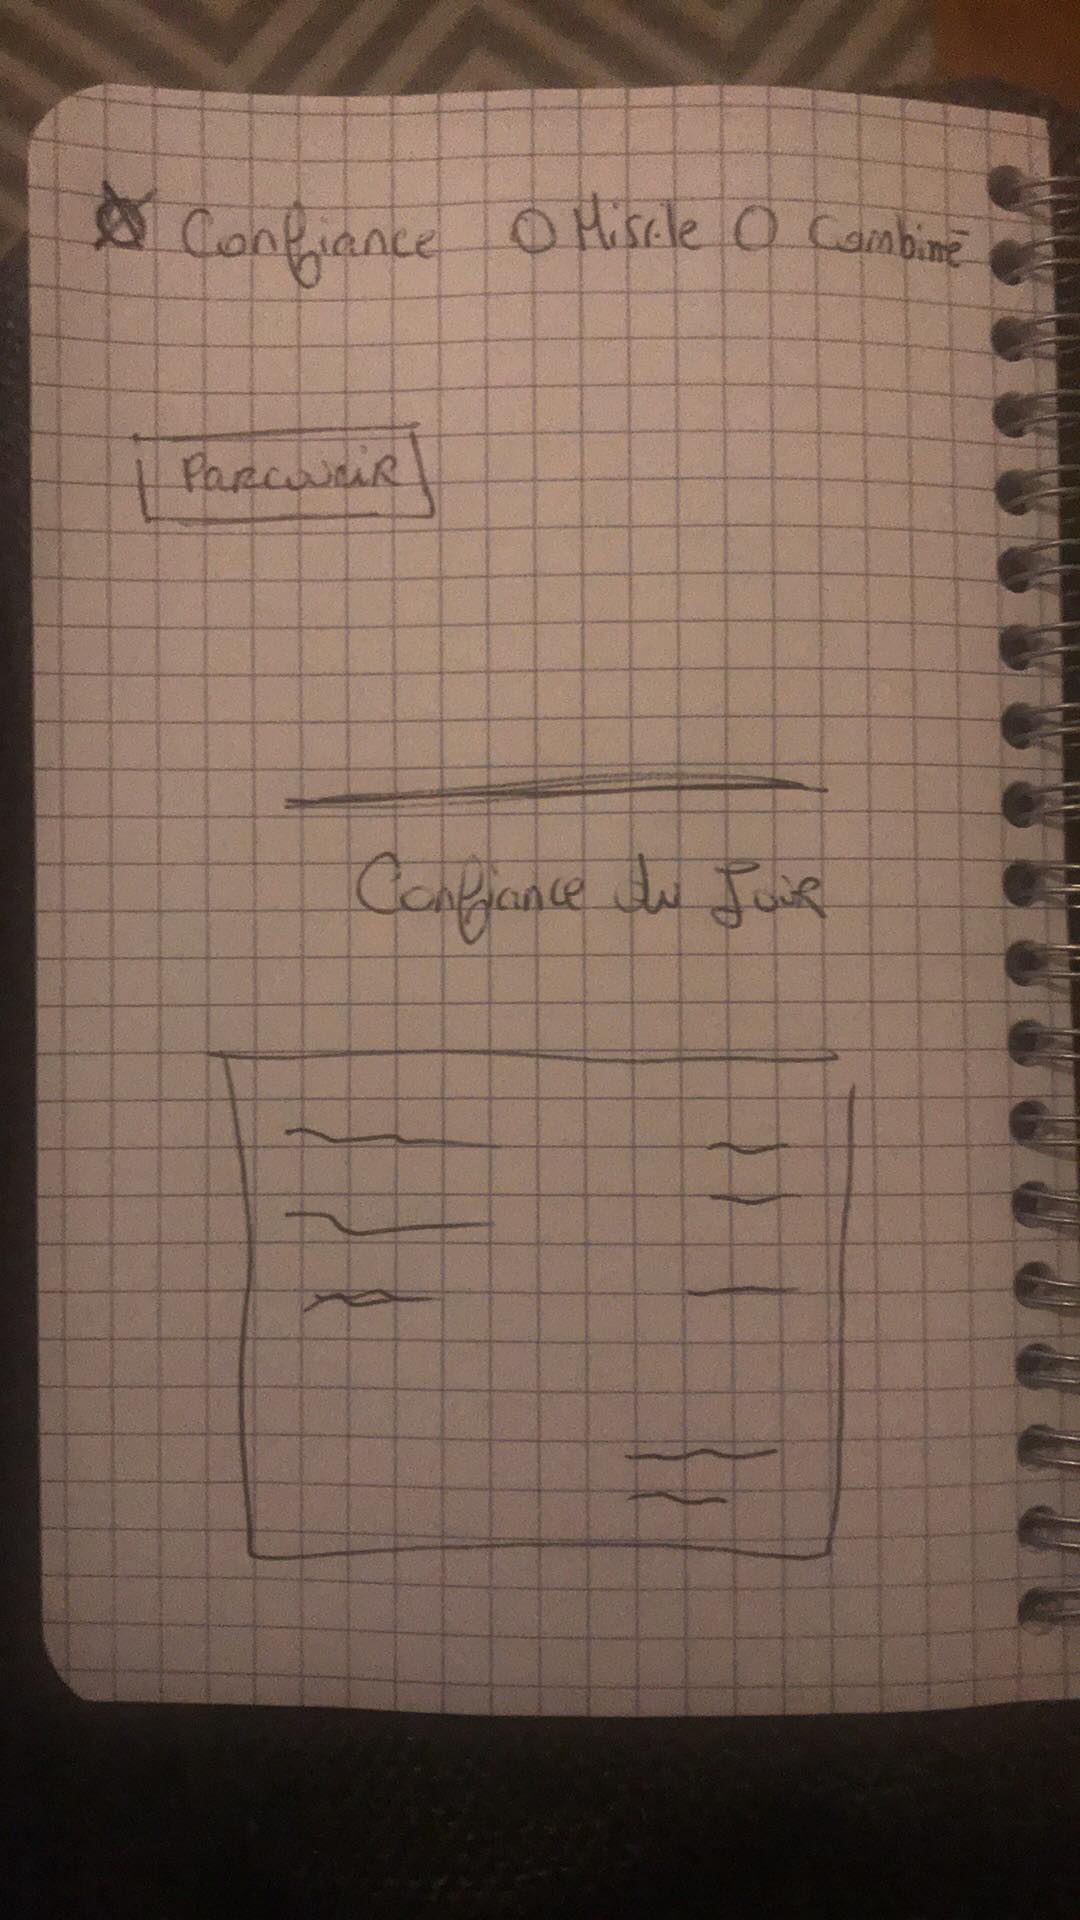 Confiance Missile Combiné
Parcourir
Confiance du Soir